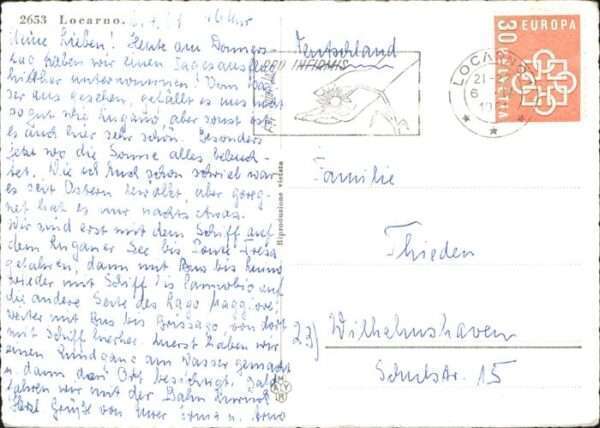 2653 Locarno.
Meine Lieben! Heute am Donners-
tag haben wir einen Tagesausflug
hierher unternommen! Vom
aus gesehen, gefällt es uns nicht
so gut wie Lugano, aber sonst ist
es auch hier sehr schön. Besonders
jetzt wo die Sonne alles beleuch-
tet. Wie ich Euch schon schrieb war
es seit Ostern bewölkt, aber gereg-
net hat es nur nachts etwas.
Wir sind erst mit dem Schiff auf
dem Luganer See bis Ponte Tresa
gefahren, dann mit Bus bis Luino
wieder mit Schiff bis Cannobio auf
die andere Seite des Lago Maggiore,
weiter mit Bus bis Brissago von dort
mit Schiff hierher. Zuerst haben wir
einen Rundgang am Wasser gemacht
u. dann den Ort besichtigt. Bald
fahren wir mit der Bahn zurück
Herzl. Grüße von Eurer Erna u. Arno
Deutschland
PRO INFIRMIS
LOCARNO
EUROPA
30
HELVETIA
Riproduzione vietata
Familie
Thieden
23) Wilhelmshaven
Schulstr. 15